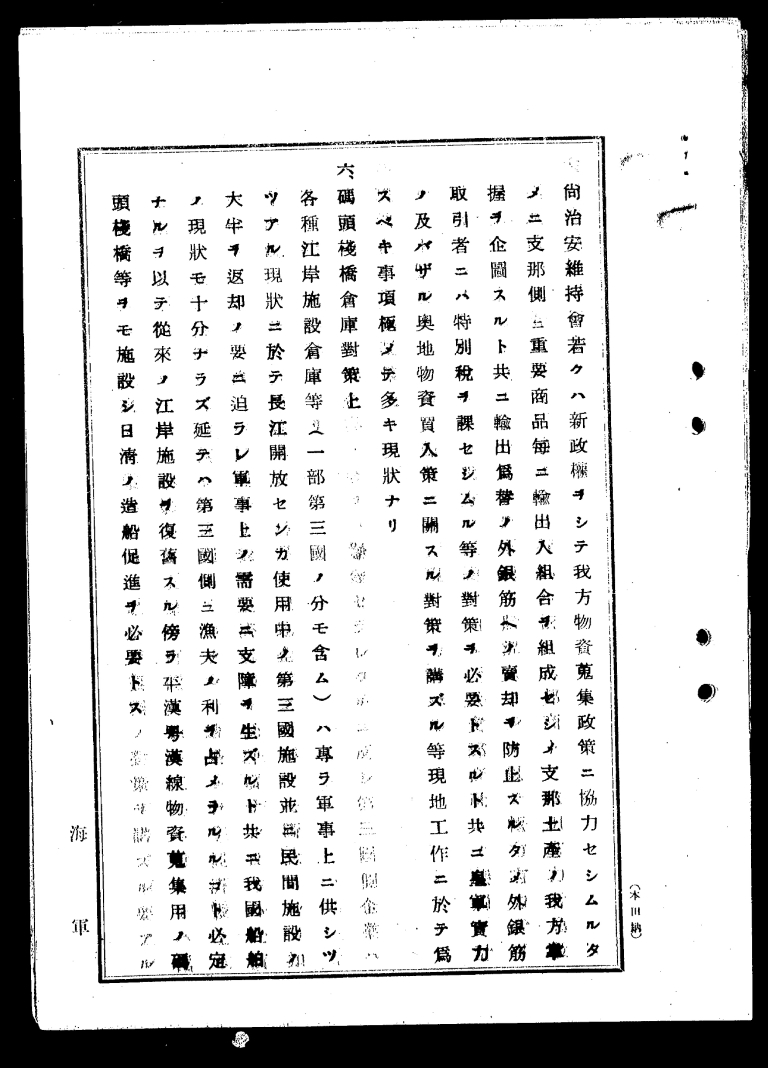 尙治安維持會若クハ新政權ヲシテ我方物資蒐集政策ニ協力セシムルタ
メニ支那側ニ重要商品每ニ輸出入組合ヲ組成セシメ支那土產ノ我方掌
握ヲ企圖スルト共ニ輸出爲替ノ外銀筋ヘノ賣却ヲ防止スルタメ外銀筋
取引者ニハ特別稅ヲ課セシムル等ノ對策ヲ必要トスルト共ニ皇軍實力
ノ及バザル奧地物資買入策ニ關スル對策ヲ講ズル等現地工作ニ於テ爲
スベキ事項極メテ多キ現狀ナリ
六、碼頭棧橋倉庫對策上
各種江岸施設倉庫等(一部第三國ノ分モ含ム)ハ專ラ軍事上ニ供シツ
ツアル現狀ニ於テ長江開放センカ使用中ノ第三國施設並ニ民間施設ノ
大半ヲ返却ノ要ニ迫ラレ軍事上ノ需要ニ支障ヲ生ズルト共ニ我國船舶
ノ現狀モ十分ナラズ延テハ第三國側ニ漁夫ノ利ヲ占メラルルコト必定
ナルヲ以テ從來ノ江岸施設ヲ復舊スル傍ラ平漢粵漢線物資蒐集用ノ碼
頭棧橋等ヲモ施設シ日淸ノ造船促進ヲ必要トス
海軍